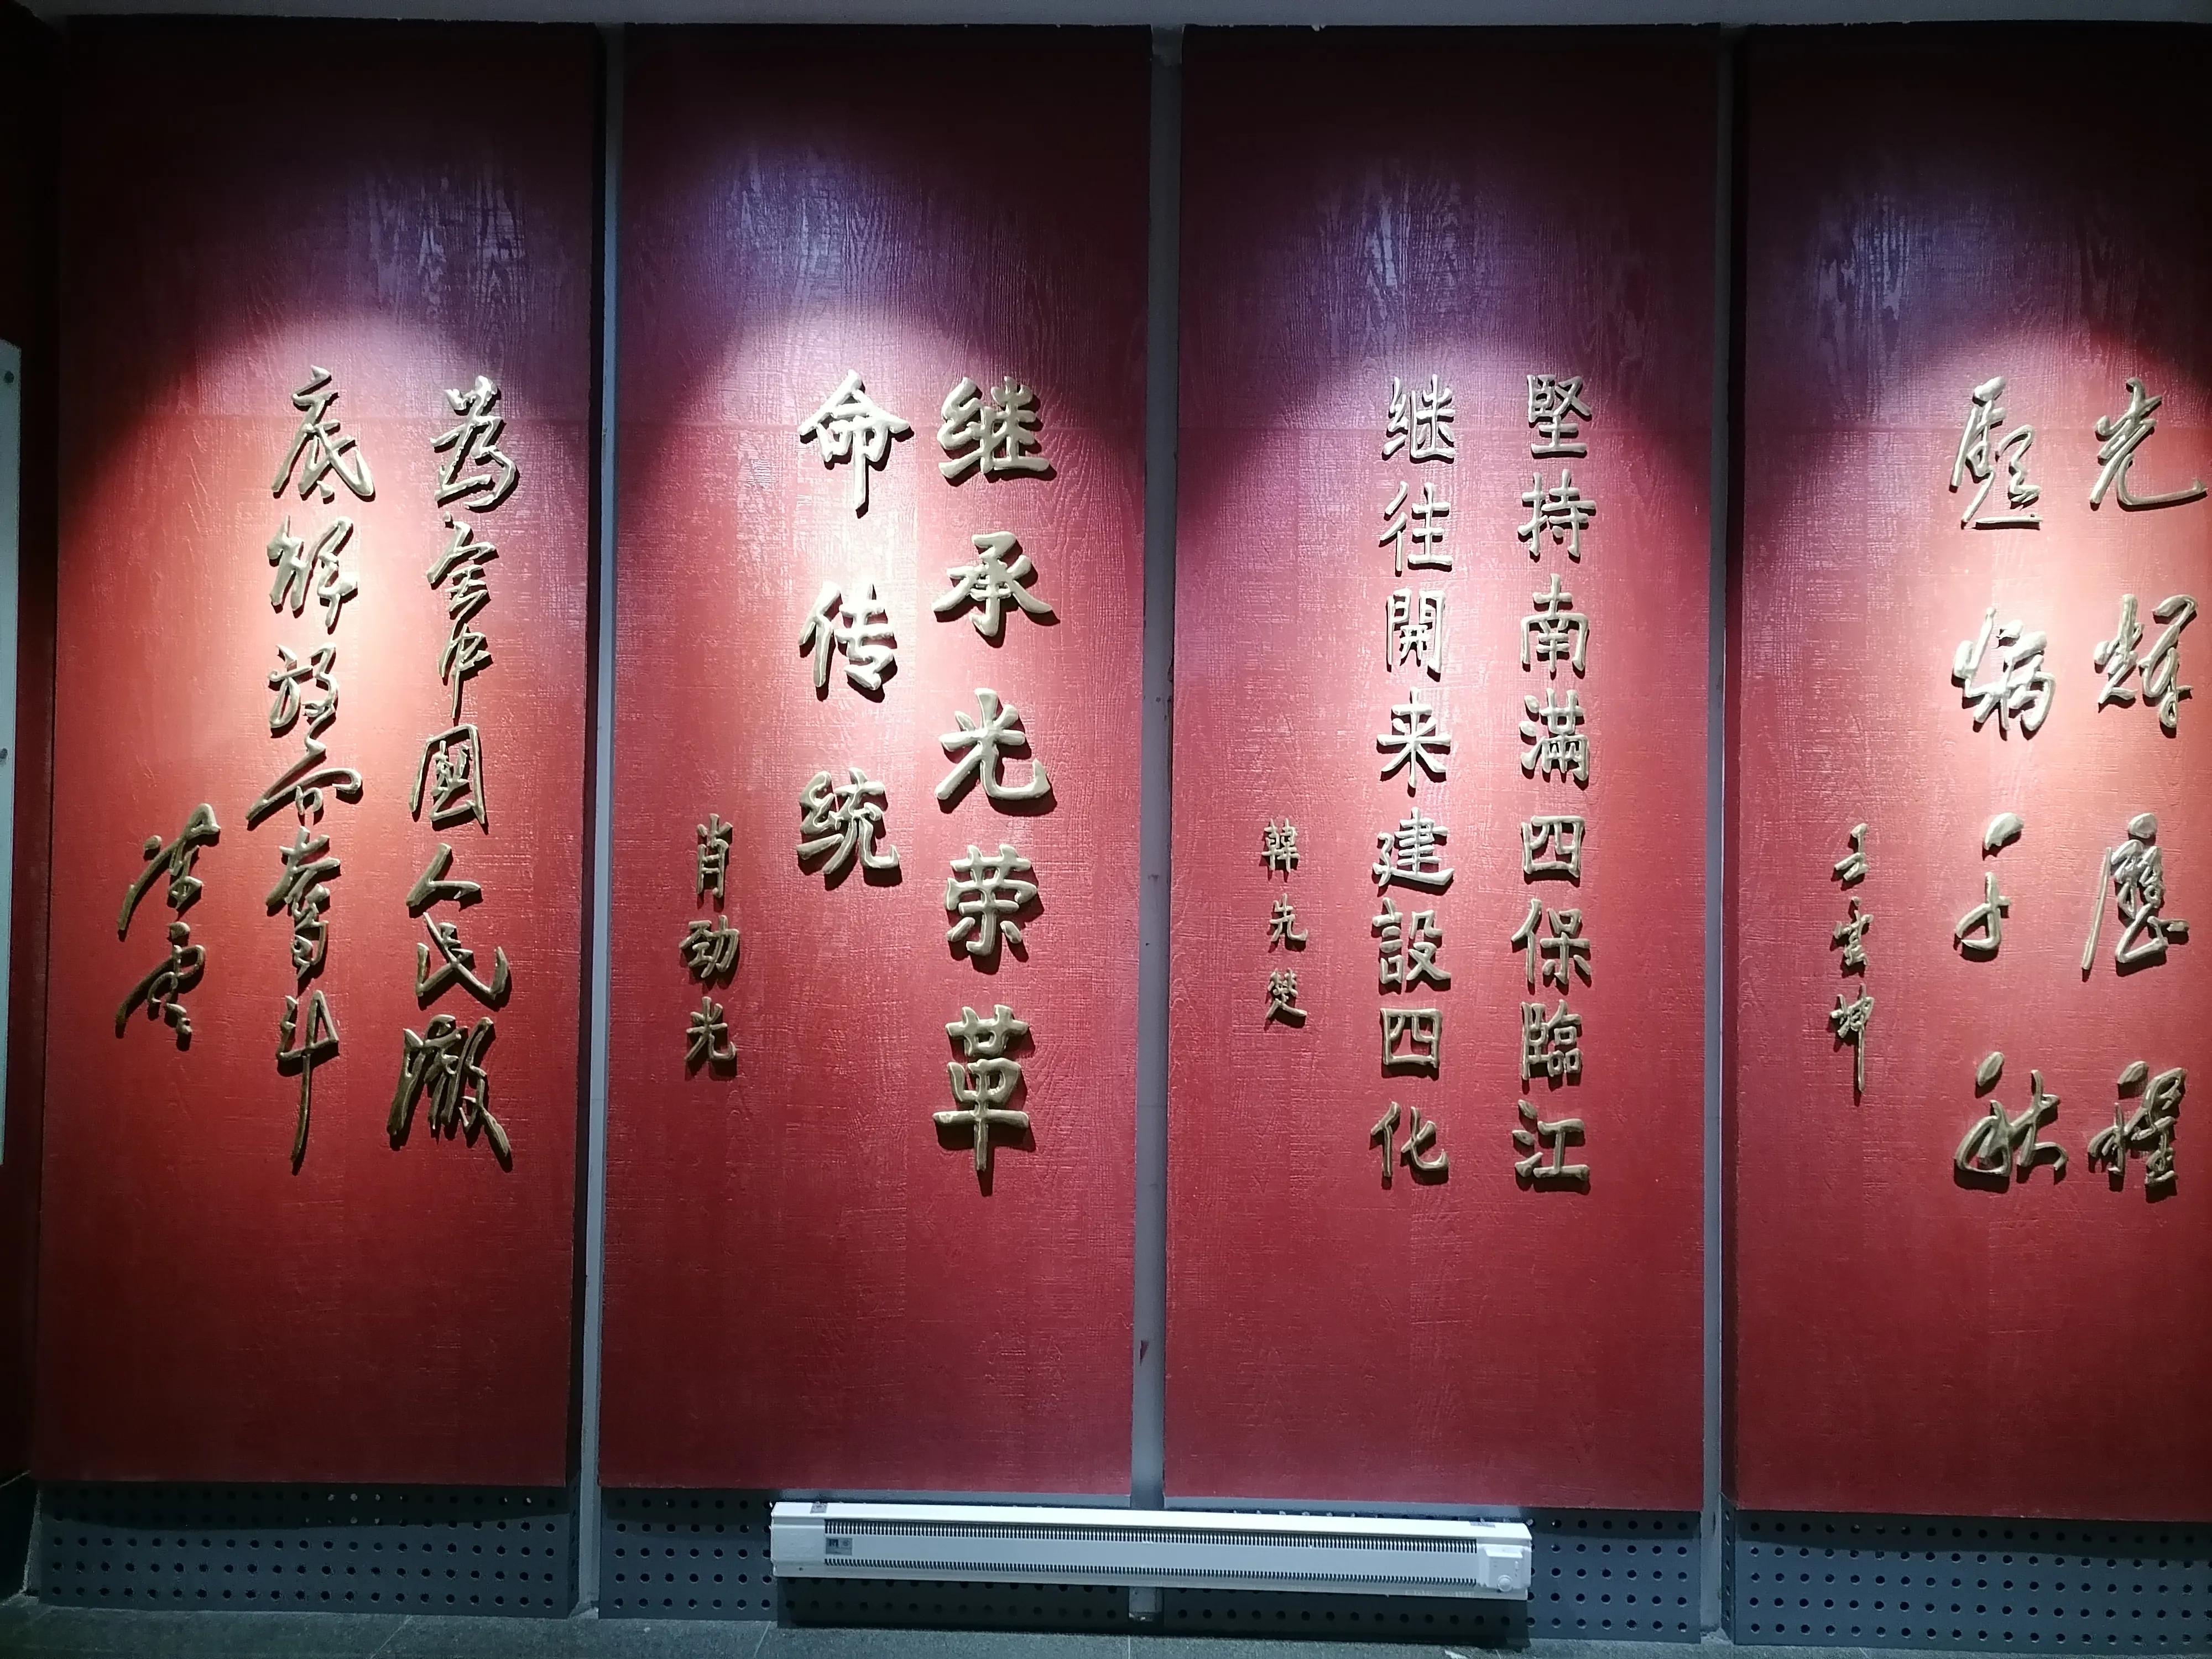 為全中國人民徹
底解放而奮斗
陈雲
继承光荣革
命传统
肖劲光
堅持南滿四保臨江
继往開来建設四化
韓先楚
光輝歷程
彪炳千秋
王雲坤